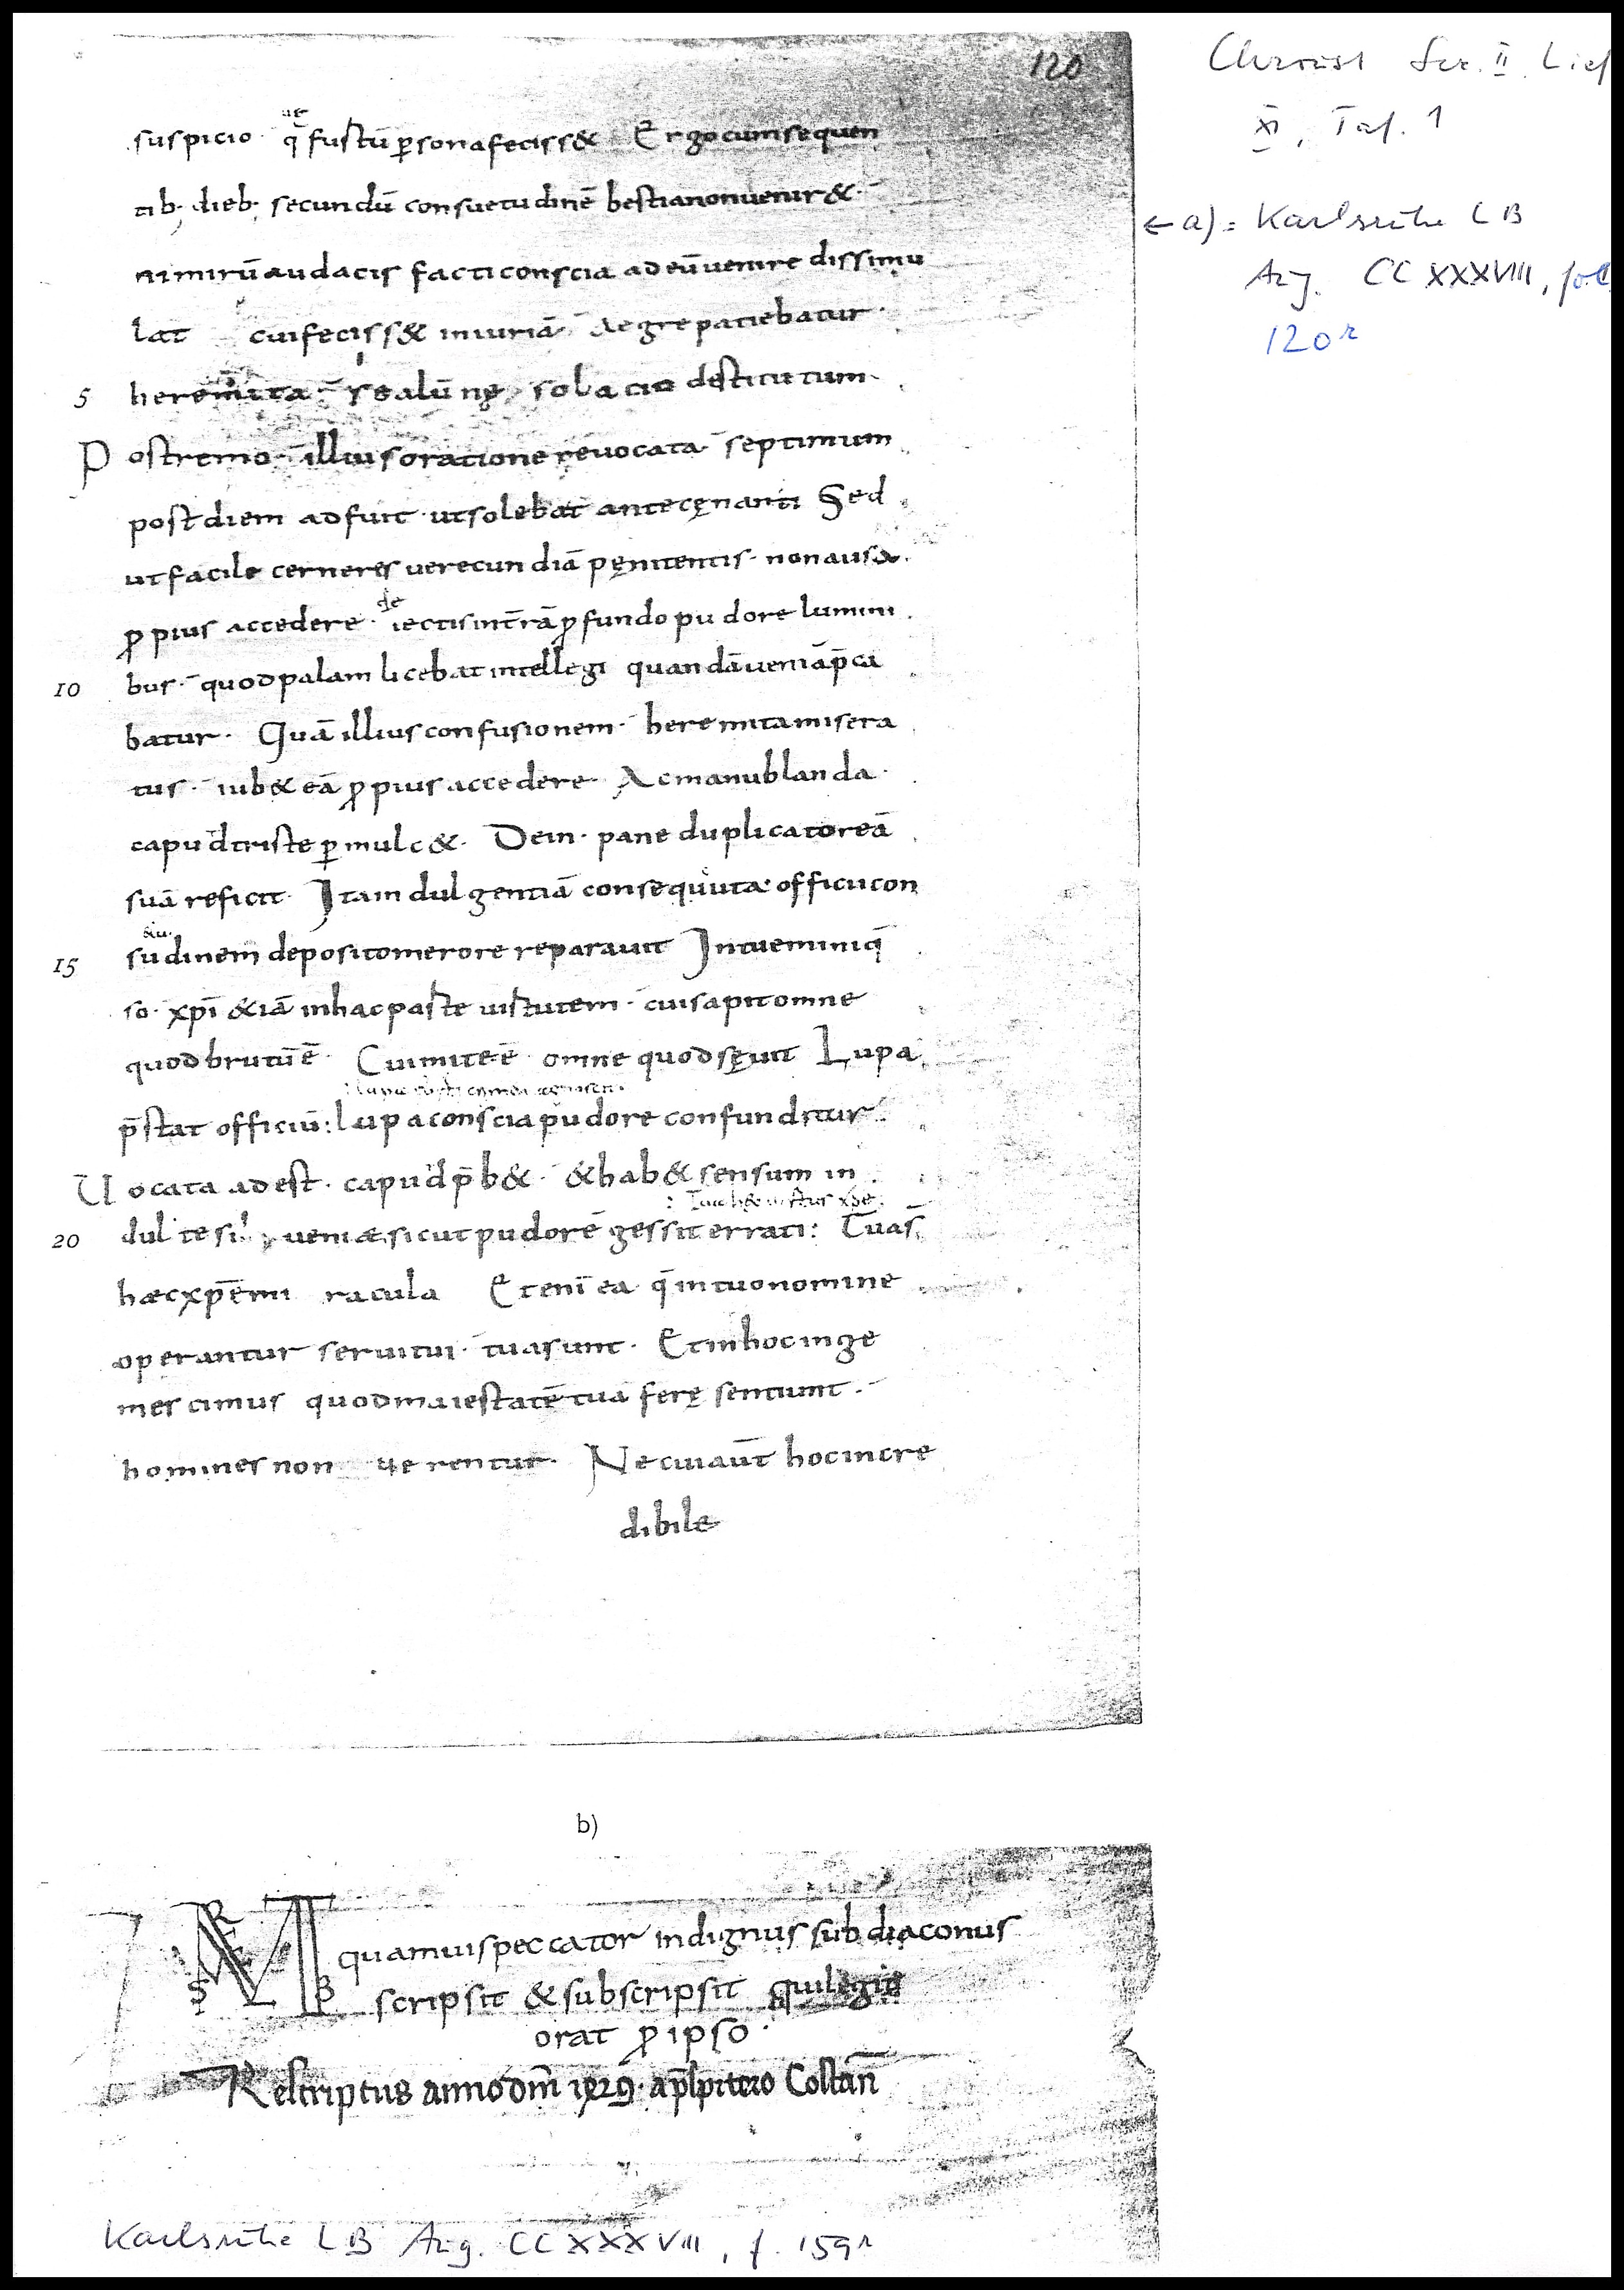 120
Chroust Ser. II. Lief
XI, Taf. 1
← a) = Karlsruhe LB
Aug. CCXXXVIII, fol
120r
suspicio · q̄ fustū ꝑsona feciss& Ergo cum sequen
ue
tib; dieb; secundū consuetudinē bestia non uenir&·
nimirū audacis facti conscia ad eū uenire dissimu
lat cui feciss& iniuriā Aegre patiebatur·
5 heremita· se alūnę solacio destitutum·
Postremo illius oratione reuocata septimum
post diem adfuit ut solebat ante cęnanti Sed
ut facile cerneres uerecundiā pęnitentis· non ausa·
ꝓpius accedere· iectis in t̄rā ꝓfundo pudore lumini
de
10 bus· quod palam licebat intellegi quandā ueniā p̄ca
batur· Quā illius confusionem· heremita misera
tus· iub& eā ꝓpius accedere· Ac manu blanda·
capud triste ꝑmulc&· Dein· pane duplicato reā
suā reficit· Ita indulgentiā consequuta· officii con
15 sudinem deposito merore reparauit Intuemini q̄
&u
so· xp̄i &iā in hac parte uirtutem· cui sapit omne
quod brutū ē· Cui mite ē omne quod sęuit Lupa
p̄stat officiū: lupa conscia pudore confunditur·
Uocata adest· capud p̄b&· &hab& sensum in
20 dul te si ueniæ sicut pudorē gessit errati: Tuas
hæc xp̄e mi racula Etenī ea q̄ in tuo nomine
operantur serui tui· tua sunt· Et in hoc inge
mescimus quod maiestatē tuā ferę sentiunt·
homines non uerentur· Ne cui aut̄ hoc incre
dibile
b)
quamuis peccator indignus subdiaconus
scripsit & subscripsit qui legit
orat ꝓ ipso·
Rescriptus anno dm̄
Karlsruhe LB Aug. CCXXXVIII, f. 159r